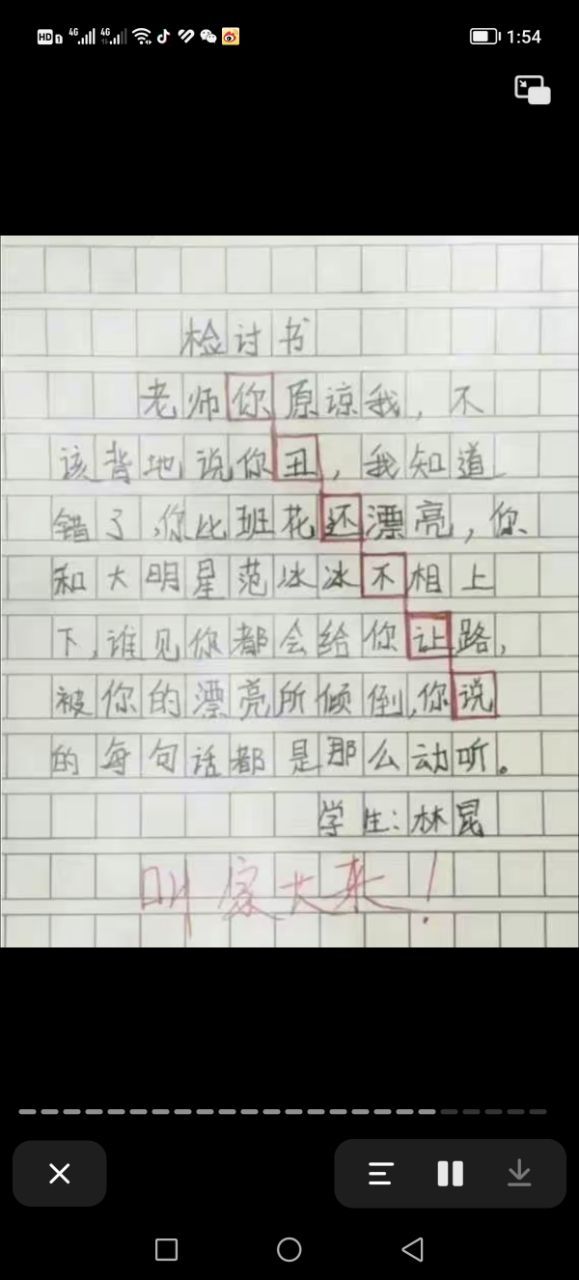 HD 1 4G 4G 1:54
检讨书
老师你原谅我，不
该背地说你丑，我知道
错了，你比班花还漂亮，你
和大明星范冰冰不相上
下，谁见你都会给你让路，
被你的漂亮所倾倒，你说
的每句话都是那么动听。
学生：林昆
叫家大来！